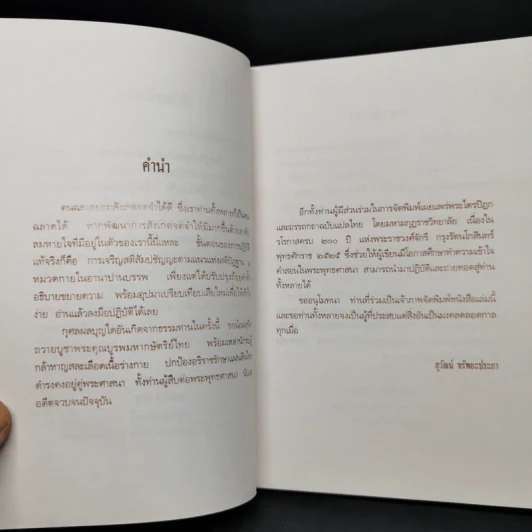 คำนำ
คนฉลาดย่อมสังเกตจดจำได้ดี ซึ่งเราท่านทั้งหลายก็เป็นคน
ฉลาดได้ หากพัฒนาการสังเกตจดจำให้มีมากขึ้นด้วย
ลมหายใจที่มีอยู่ในตัวของเรานี้แหละ ขั้นตอนของการปฏิบัติ
แท้จริงก็คือ การเจริญสติสัมปชัญญะตามแนวแห่งสติปัฏฐาน ๔
หมวดกายในอานาปานบรรพ เพียงแต่ได้ปรับปรุงถ้อยคำ
อธิบายขยายความ พร้อมอุปมาเปรียบเทียบเสียใหม่เพื่อให้เข้าใจ
ง่าย อ่านแล้วลงมือปฏิบัติได้เลย
กุศลผลบุญใดอันเกิดจากธรรมทานในครั้งนี้ ขอน้อม
ถวายบูชาพระคุณบูรพมหากษัตริย์ไทย พร้อมเหล่านักรบผู้
กล้าหาญสละเลือดเนื้อร่างกาย ปกป้องอริราชรักษาแผ่นดินไทย
ดำรงคงอยู่คู่พระศาสนา ทั้งท่านผู้สืบต่อพระพุทธศาสนา นับแต่
อดีตจวบจนปัจจุบัน
อีกทั้งท่านผู้มีส่วนร่วมในการจัดพิมพ์เผยแพร่พระไตรปิฎก
และอรรถกถาฉบับแปลไทย โดยมหามกุฏราชวิทยาลัย เนื่องใน
วโรกาสครบ ๒๐๐ ปี แห่งพระราชวงศ์จักรี กรุงรัตนโกสินทร์
พุทธศักราช ๒๕๒๕ ซึ่งช่วยให้ผู้เขียนมีโอกาสศึกษาทำความเข้าใจ
คำสอนในพระพุทธศาสนา สามารถนำมาปฏิบัติและถ่ายทอดสู่ท่าน
ทั้งหลายได้
ขออนุโมทนา ท่านที่ร่วมเป็นเจ้าภาพจัดพิมพ์หนังสือเล่มนี้
และขอท่านทั้งหลายจงเป็นผู้ที่ประสบแต่สิ่งอันเป็นมงคลตลอดกาล
ทุกเมื่อ
สุวัฒน์ ทรัพยะประภา